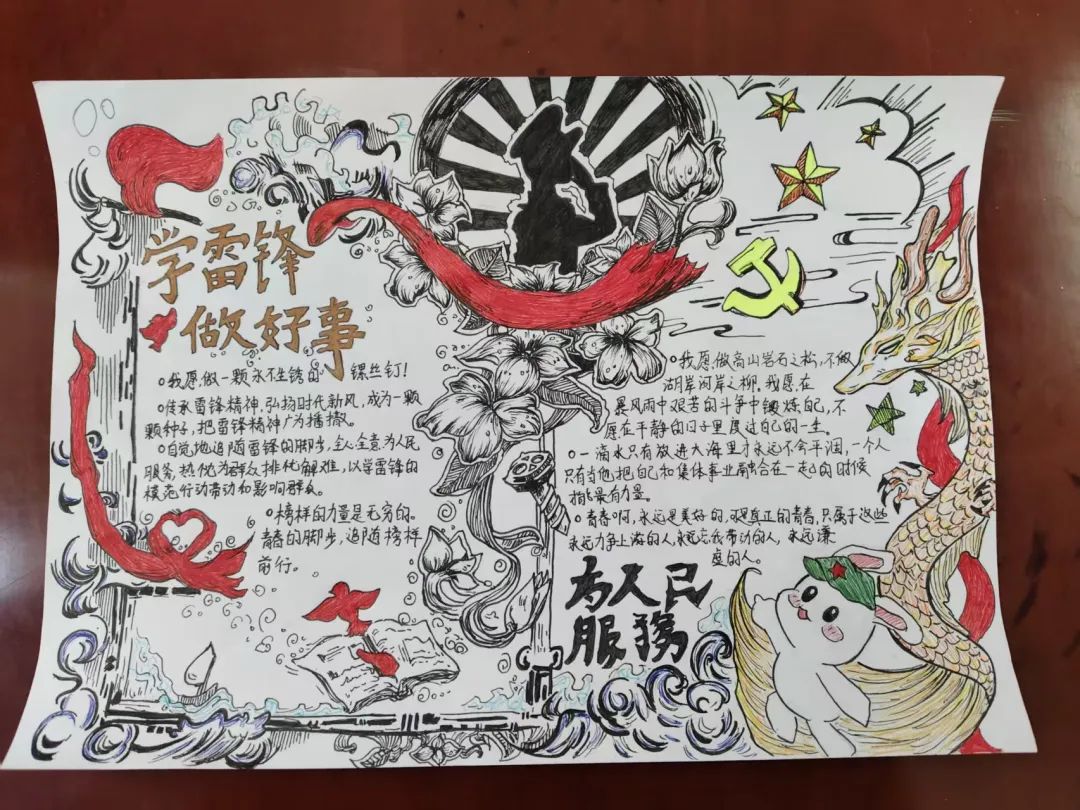 学雷锋
做好事
我愿做一颗永不生锈的 螺丝钉!
传承雷锋精神,弘扬时代新风,成为一颗
颗种子,把雷锋精神广为播撒。
自觉地追随雷锋的脚步,全心全意为人民
服务,热忱为群众排忧解难,以学雷锋的
模范行动带动和影响群众。
榜样的力量是无穷的。
青春的脚步,追随榜样
前行。
我愿做高山岩石之松,不做
湖岸河岸之柳。我愿在
暴风雨中艰苦的斗争中锻炼自己,不
愿在平静的日子里度过自己的一生。
一滴水只有放进大海里才永远不会干涸,一个人
只有当他把自己和集体事业融合在一起的时候
才能最有力量。
青春啊,永远是美好的,可是真正的青春,只属于这些
永远力争上游的人,永远忘我劳动的人,永远谦
虚的人。
为人民
服務